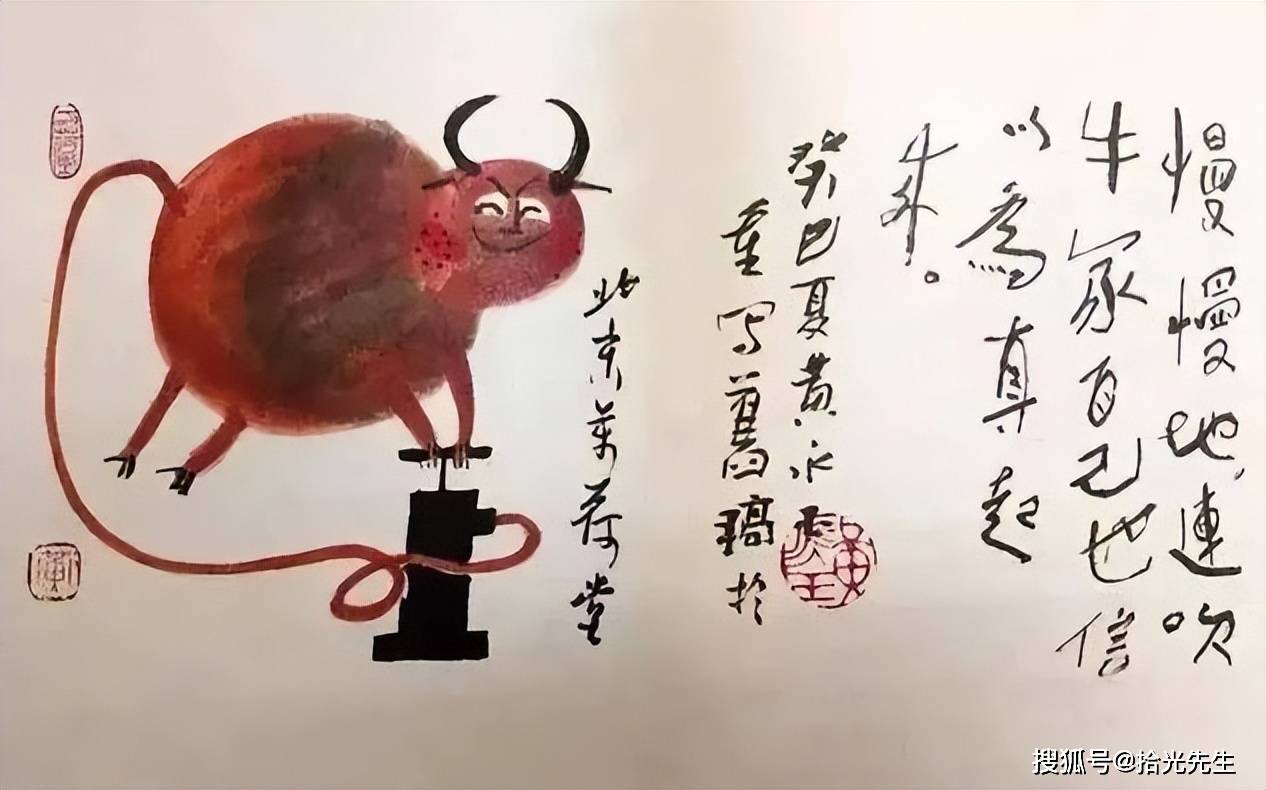 慢慢地，連吹
牛家自己也信
以為真起
来。
癸巳夏黄永玉
重写舊稿於
北京萬荷堂
搜狐号@拾光先生